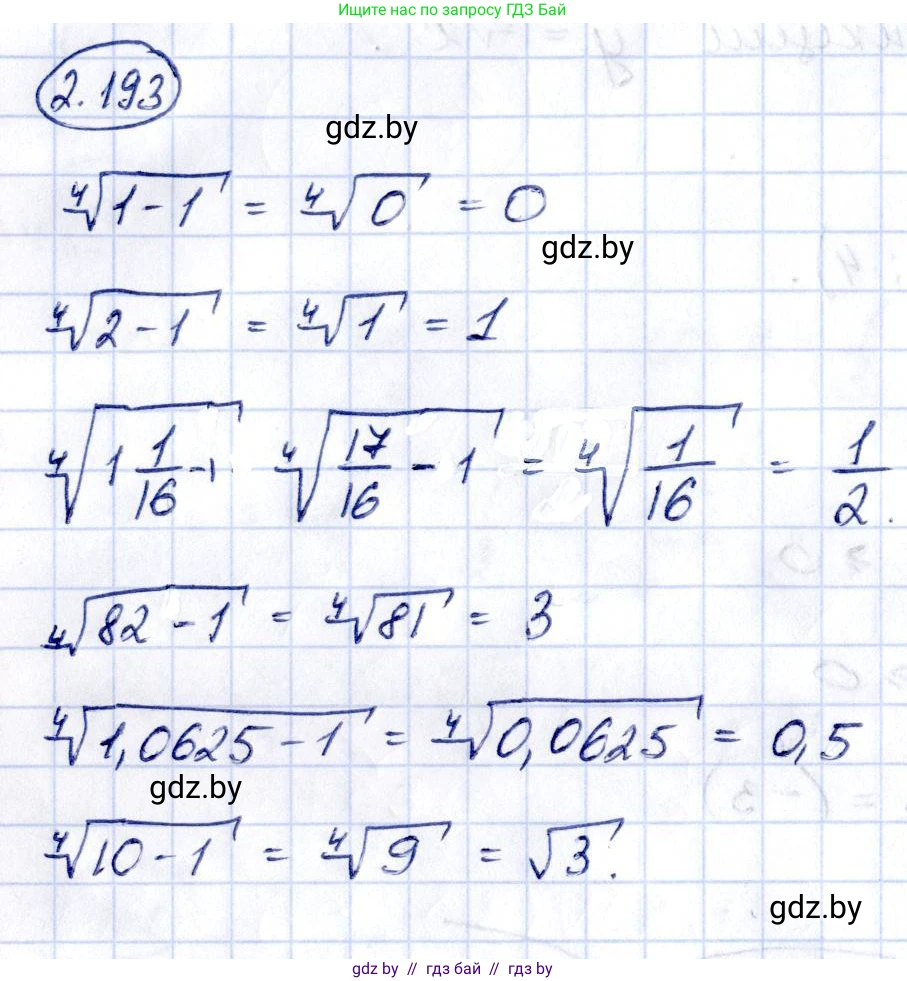 Ищите нас по запросу ГДЗ Бай
2.193
gdz.by
∜(1-1) = ∜0 = 0
gdz.by
∜(2-1) = ∜1 = 1
∜(1 1/16 - 1) ∜(17/16 - 1) = ∜(1/16) = 1/2.
∜(82-1) = ∜81 = 3
∜(1,0625-1) = ∜(0,0625) = 0,5
gdz.by
∜(10-1) = ∜9 = √3.
gdz.by
gdz.by // гдз бай // гдз by